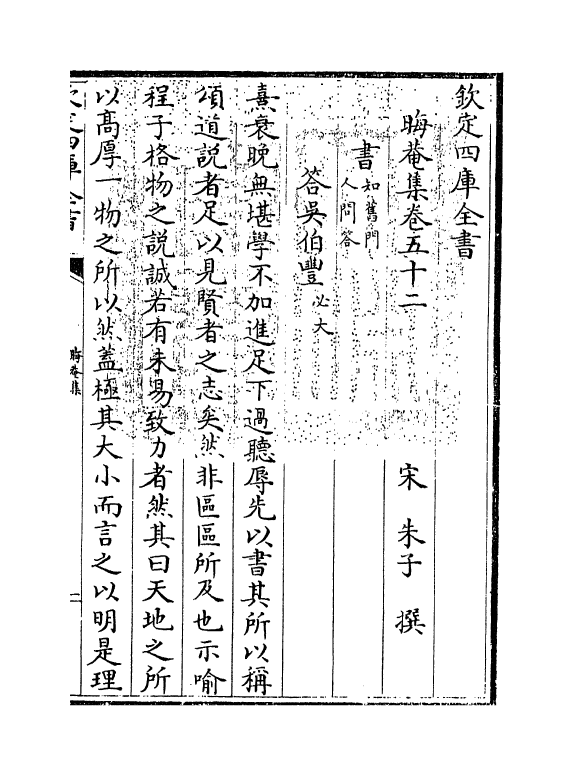 欽定四庫全書
晦菴集卷五十二
宋 朱子 撰
書 知舊門人問答
答吳伯豐 必大
熹衰晚無堪學不加進足下過聽辱先以書其所以稱
頌道説者足以見賢者之志矣然非區區所及也示喻
程子格物之説誠若有未易致力者然其曰天地之所
以髙厚一物之所以然蓋極其大小而言之以明是理
欽定四庫全書
晦菴集
一